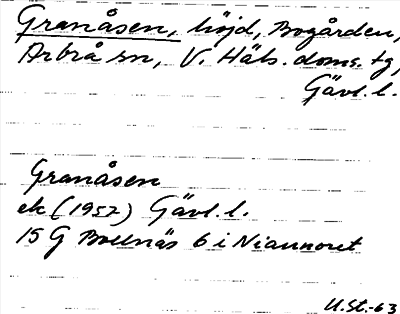 Granåsen, höjd, Bogården,
Arbrå sn, V. Häls. doms. tg,
Gävl. l.
Granåsen
ek (1957) Gävl. l.
15 G Bollnäs 6 i Niannoret
U.St.-63